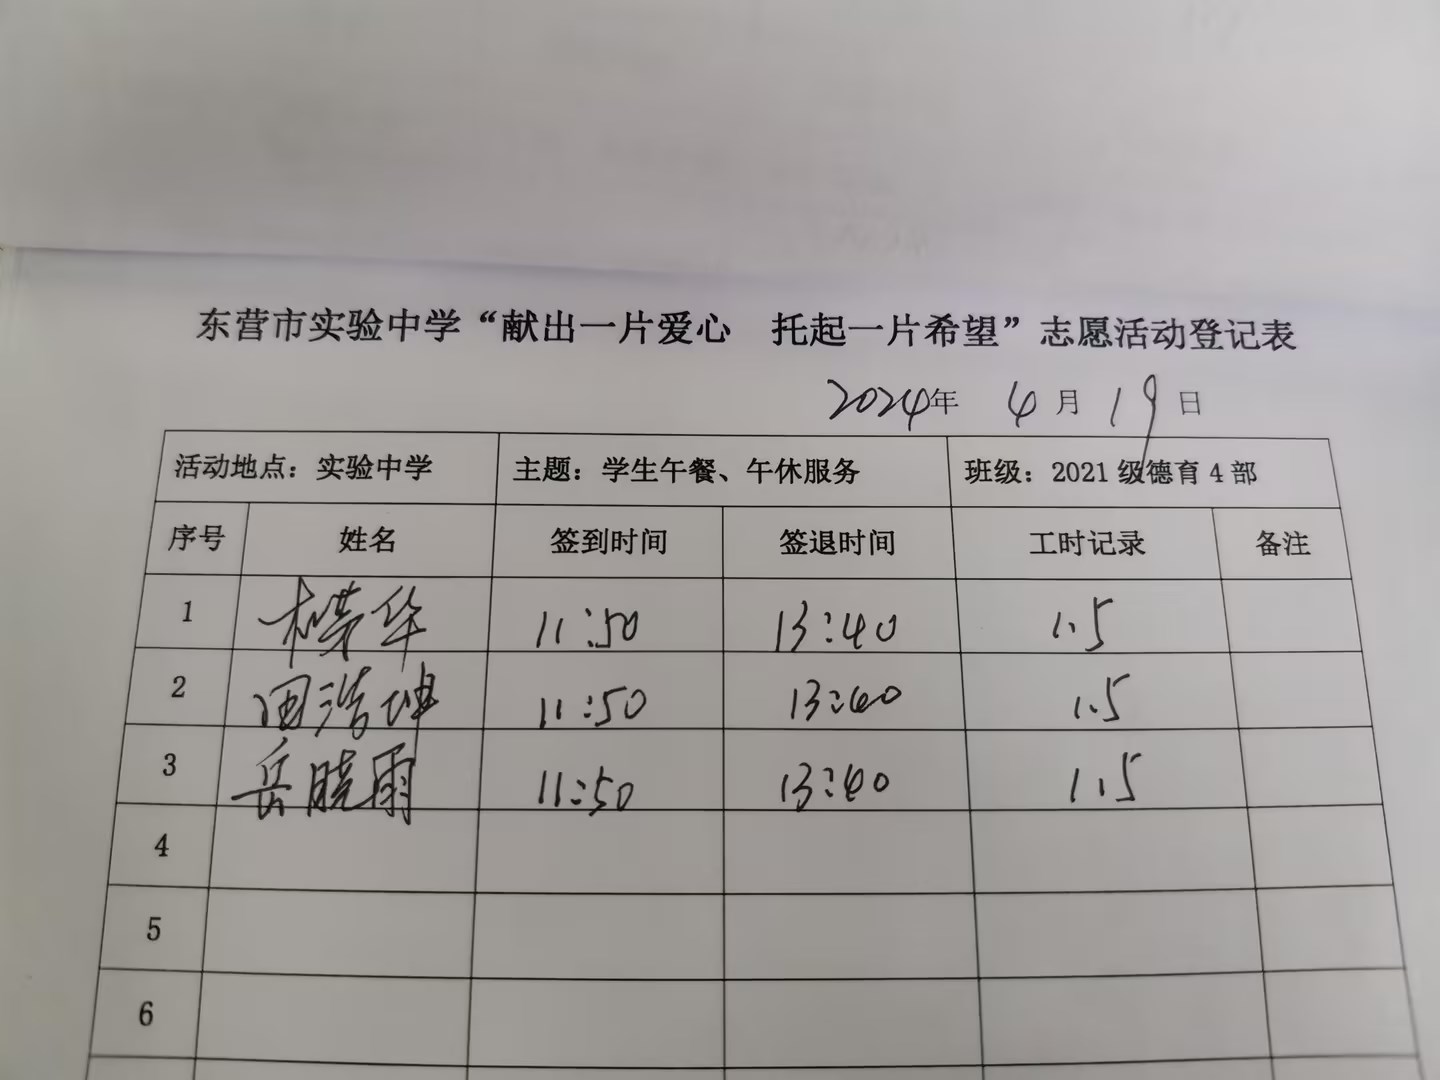 东营市实验中学“献出一片爱心 托起一片希望”志愿活动登记表
2024年 4月 19日
活动地点：实验中学 主题：学生午餐、午休服务 班级：2021级德育4部
序号 姓名 签到时间 签退时间 工时记录 备注
1 荣华 11:50 13:40 1.5
2 田浩坤 11:50 13:40 1.5
3 岳晓雨 11:50 13:40 1.5
4
5
6